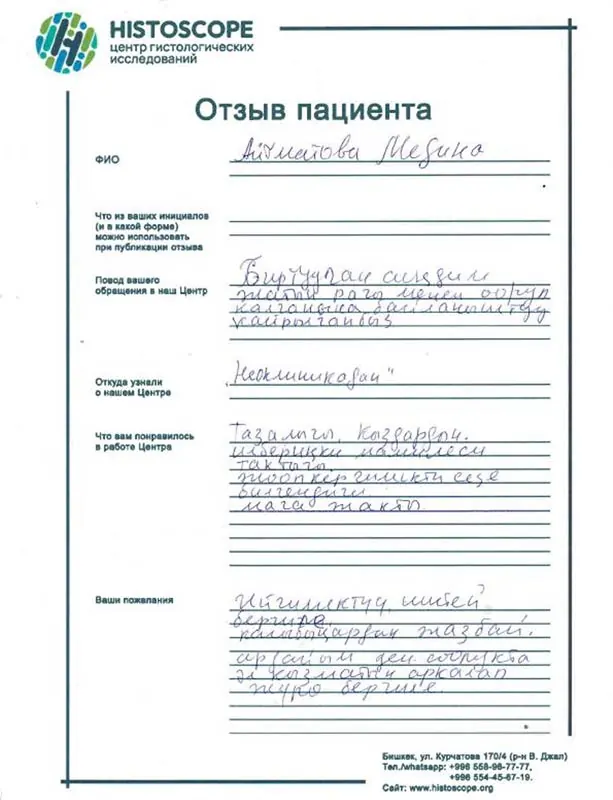 HISTOSCOPE
центр гистологических
исследований
Отзыв пациента
ФИО
Айтматова Медина
Что из ваших инициалов
(и в какой форме)
можно использовать
при публикации отзыва
Повод вашего
обращения в наш Центр
Бир тууган сиңдим
жатын рагы менен ооруп
калганына байланыштуу
кайрылганбыз
Откуда узнали
о нашем Центре
„Неоклиникадан"
Что вам понравилось
в работе Центра
Тазалыгы, кыздардын
мамилеси
тактыгы
жоопкерчиликти сезе
билгендиги
мага жакты.
Ваши пожелания
Ийгиликтүү иштей
бергиле,
жазбай,
дайым ден соолукта
эл кызматын аркалап
жүрө бергиле.
Бишкек, ул. Курчатова 170/4 (р-н В. Джал)
Тел./whatsapp: +996 558-96-77-77,
+996 554-45-67-19.
Сайт: www.histoscope.org